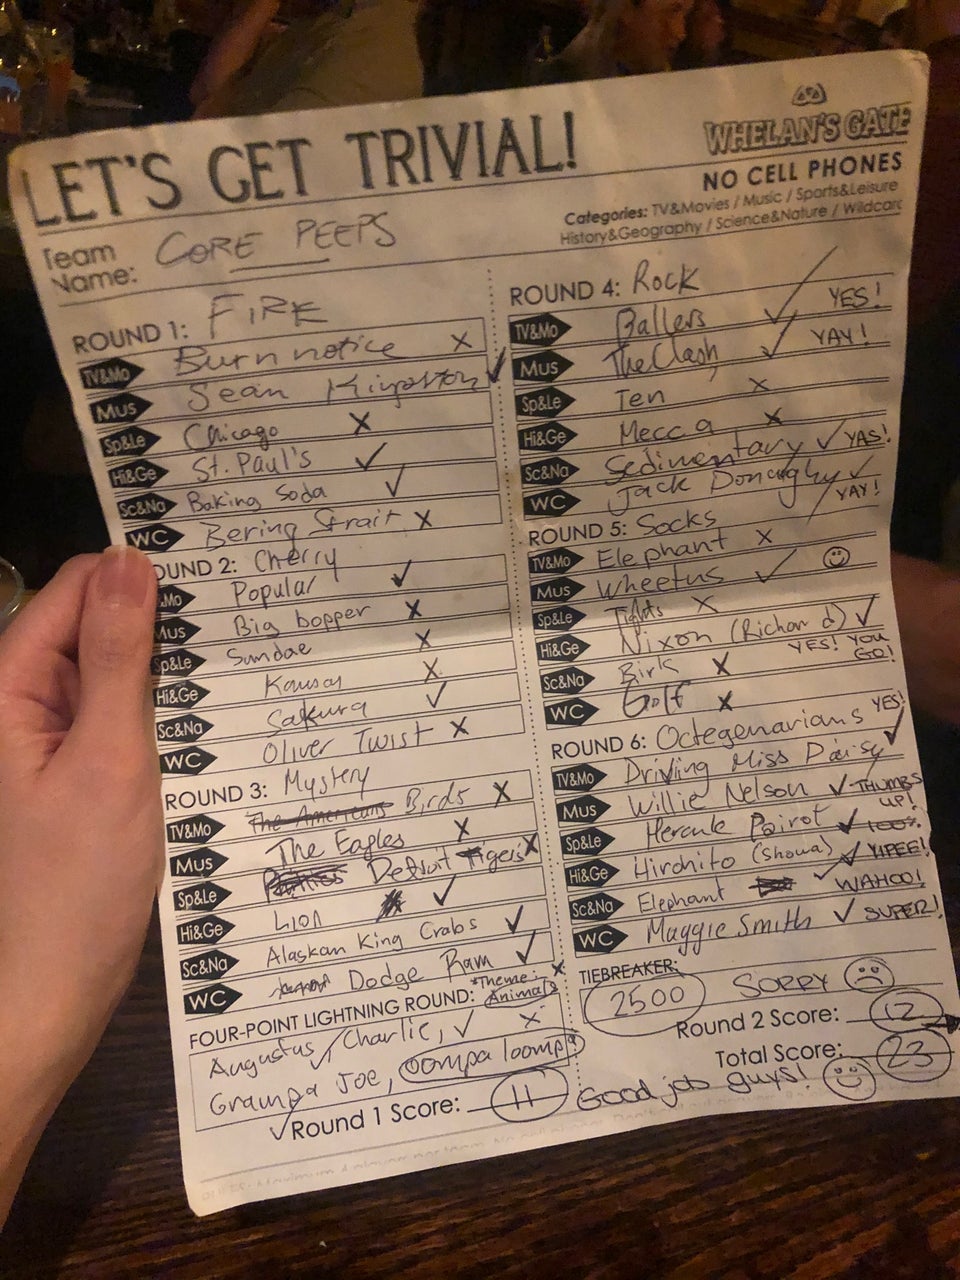 LET'S GET TRIVIAL!
WHELAN'S GATE
NO CELL PHONES
Categories: TV&Movies / Music / Sports&Leisure
History&Geography / Science&Nature / Wildcard
Team Name: CORE PEEPS
ROUND 1: FIRE
TV&Mo Burn notice X
Mus Sean Kingston ✓
Sp&Le Chicago X
Hi&Ge St. Paul's ✓
Sc&Na Baking Soda ✓
WC Bering Strait X
OUND 2: Cherry
Mo Popular ✓
Mus Big bopper X
Sp&Le Sundae X
Hi&Ge Kansas X
Sc&Na Sakura ✓
WC Oliver Twist X
ROUND 3: Mystery
TV&Mo The Americans Birds X
Mus The Eagles X
Sp&Le Detroit Tigers X
Hi&Ge Lion ✓
Sc&Na Alaskan King Crabs ✓
WC Dodge Ram ✓
*Theme: Animals X
FOUR-POINT LIGHTNING ROUND:
Augustus ✓ Charlie, ✓ X
Grampa Joe, oompa loompa
✓ Round 1 Score: 11
ROUND 4: Rock
TV&Mo Ballers ✓ YES!
Mus The Clash ✓ YAY!
Sp&Le Ten X
Hi&Ge Mecca X
Sc&Na Sedimentary ✓ YAS!
WC Jack Donaghy ✓ YAY!
ROUND 5: Socks
TV&Mo Elephant X
Mus Wheetus ✓
Sp&Le Tights X
Hi&Ge Nixon (Richard) ✓
YES! YOU GO!
Sc&Na Birk X
WC Golf X
ROUND 6: Octegenarians YES!
TV&Mo Driving Miss Daisy ✓
Mus Willie Nelson ✓ THUMBS UP!
Sp&Le Hercule Poirot ✓ 100%
Hi&Ge Hirohito (Showa) ✓ YIPEE!
Sc&Na Elephant ✓ WAHOO!
WC Maggie Smith ✓ SUPER!
TIEBREAKER:
2500 SORRY
Round 2 Score: 12
Total Score: 23
Good job guys!